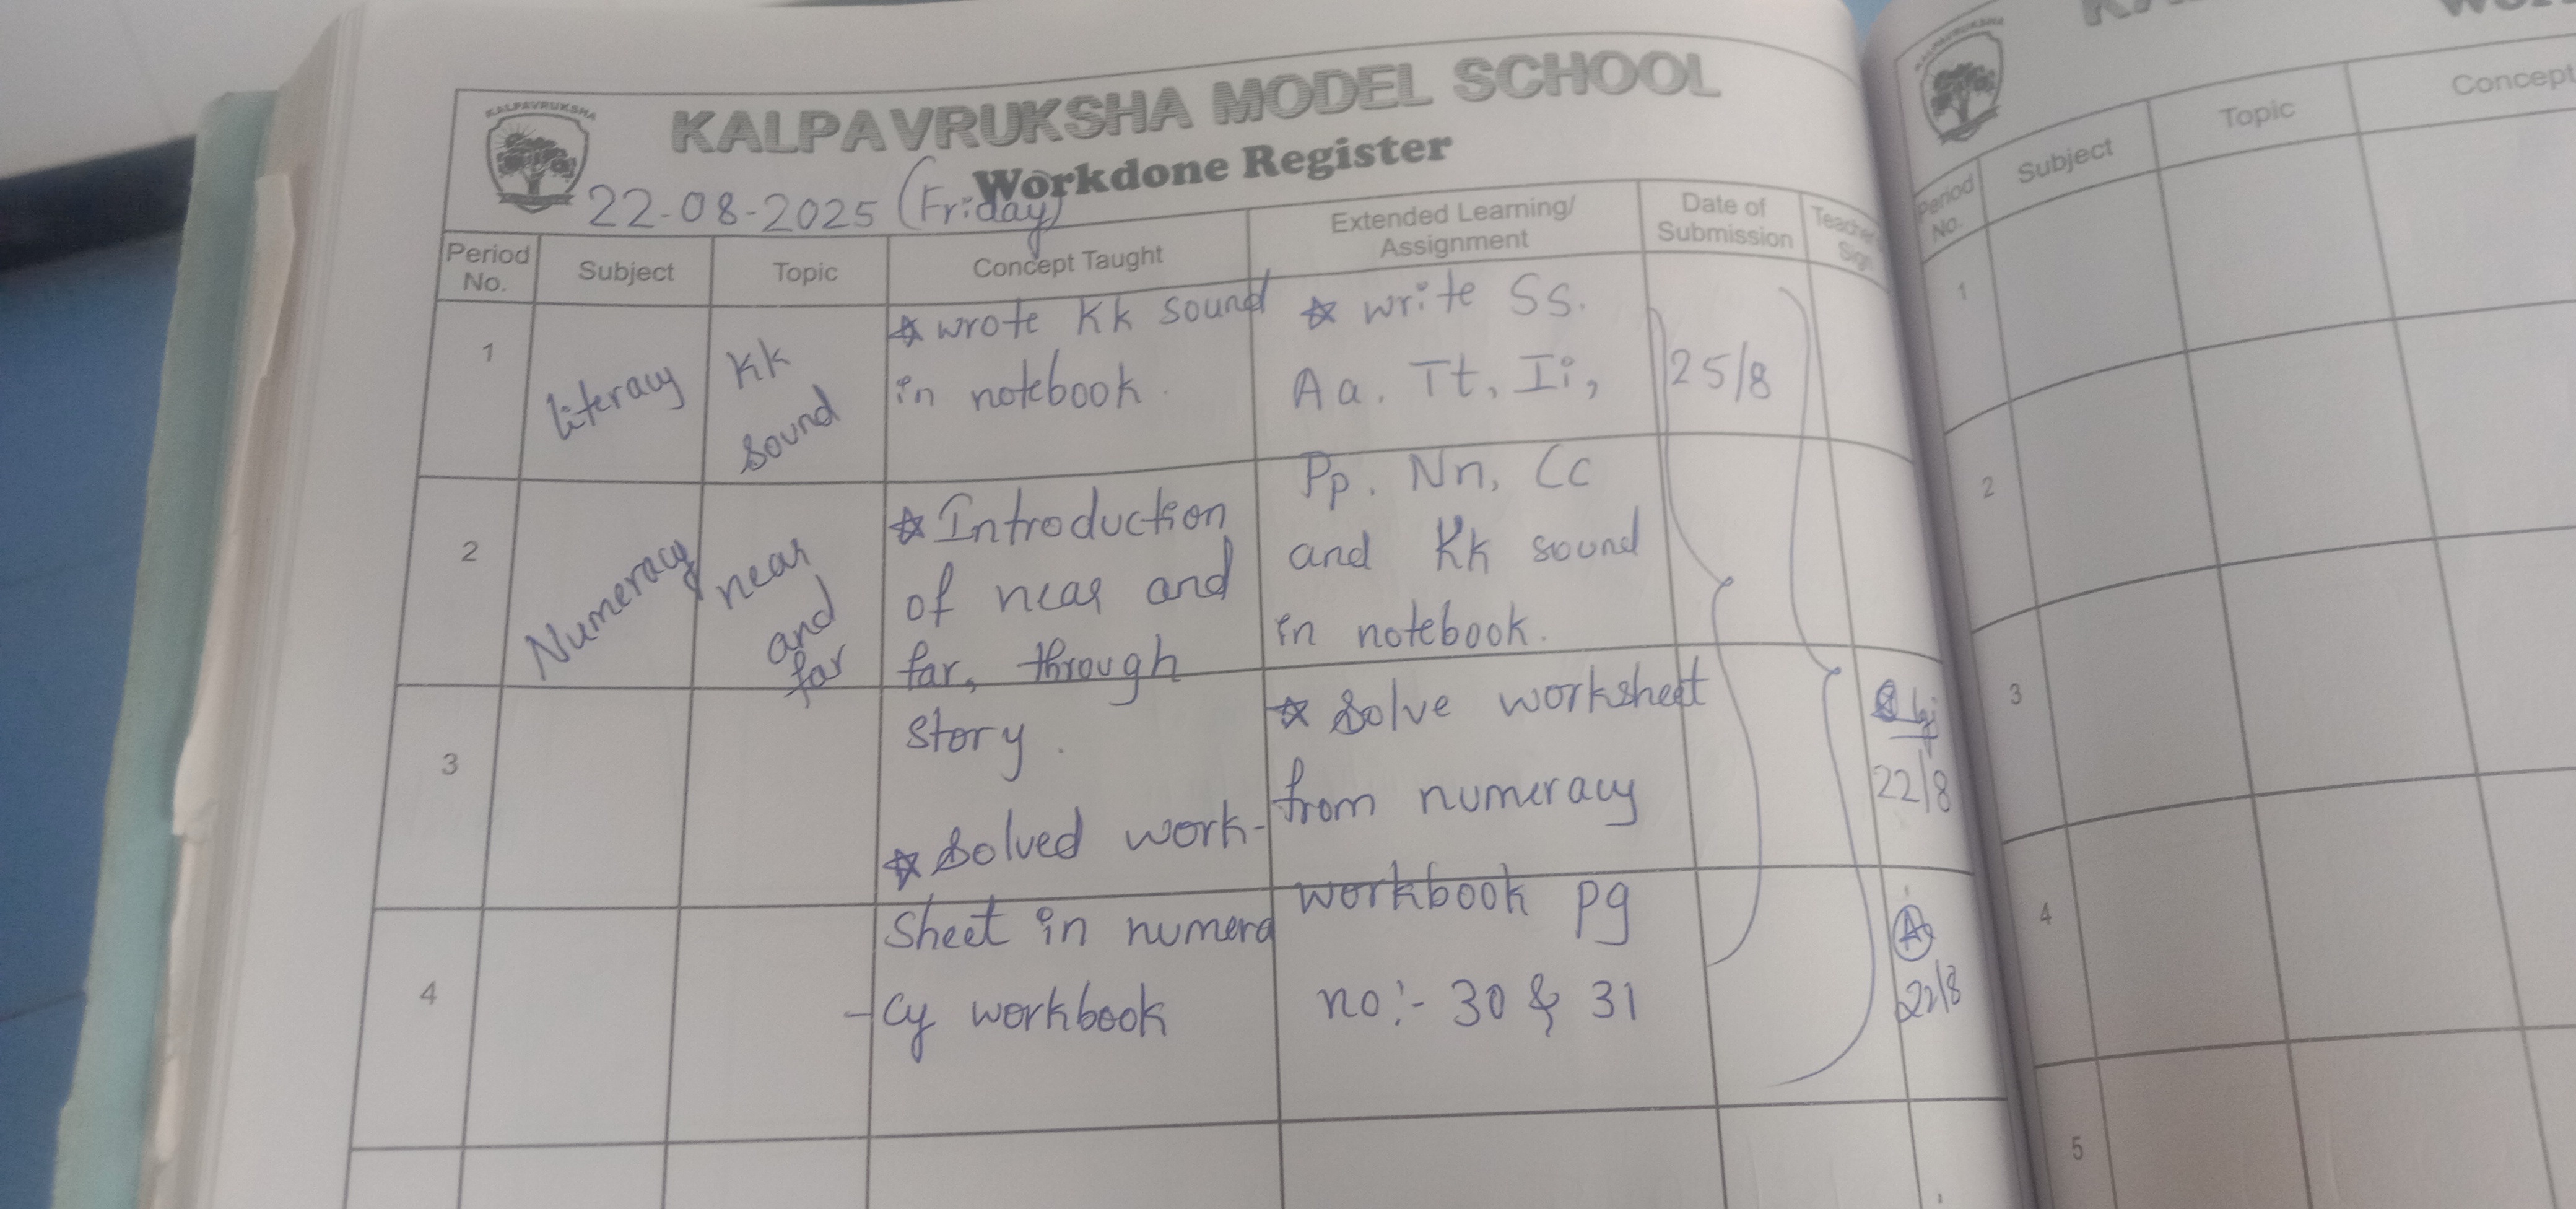 KALPAVRUKSHA
KALPAVRUKSHA MODEL SCHOOL
Workdone Register
22-08-2025 (Friday)
Period No.
Subject
Topic
Concept Taught
Extended Learning/
Assignment
Date of
Submission
Teacher
Sign
1
literacy
Kk
sound
☆ wrote Kk sound
in notebook.
☆ write Ss.
Aa. Tt, Ii,
25/8
2
Numeracy
near
and
far
☆ Introduction
of near and
far, through
Pp. Nn, Cc
and Kk sound
in notebook.
3
story.
☆ Solved work-
☆ Solve worksheet
from numeracy
22/8
4
Sheet in numera
-cy workbook
workbook pg
no:- 30 & 31
22/8
KALPAVRUKSHA
Period
No.
Subject
Topic
Concept
1
2
3
4
5